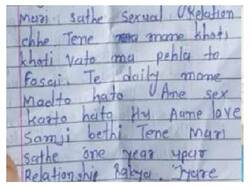 Mari sathe Sexual Relation
chhe Tene mane khoti
khoti vato ma pehla to
fosai. Te daily mane
Madto hato Ane sex
Karto hato Hu Aane love
Samji bethi Tene Mari
sathe one year upar
Relationship Rakhya. Jyare